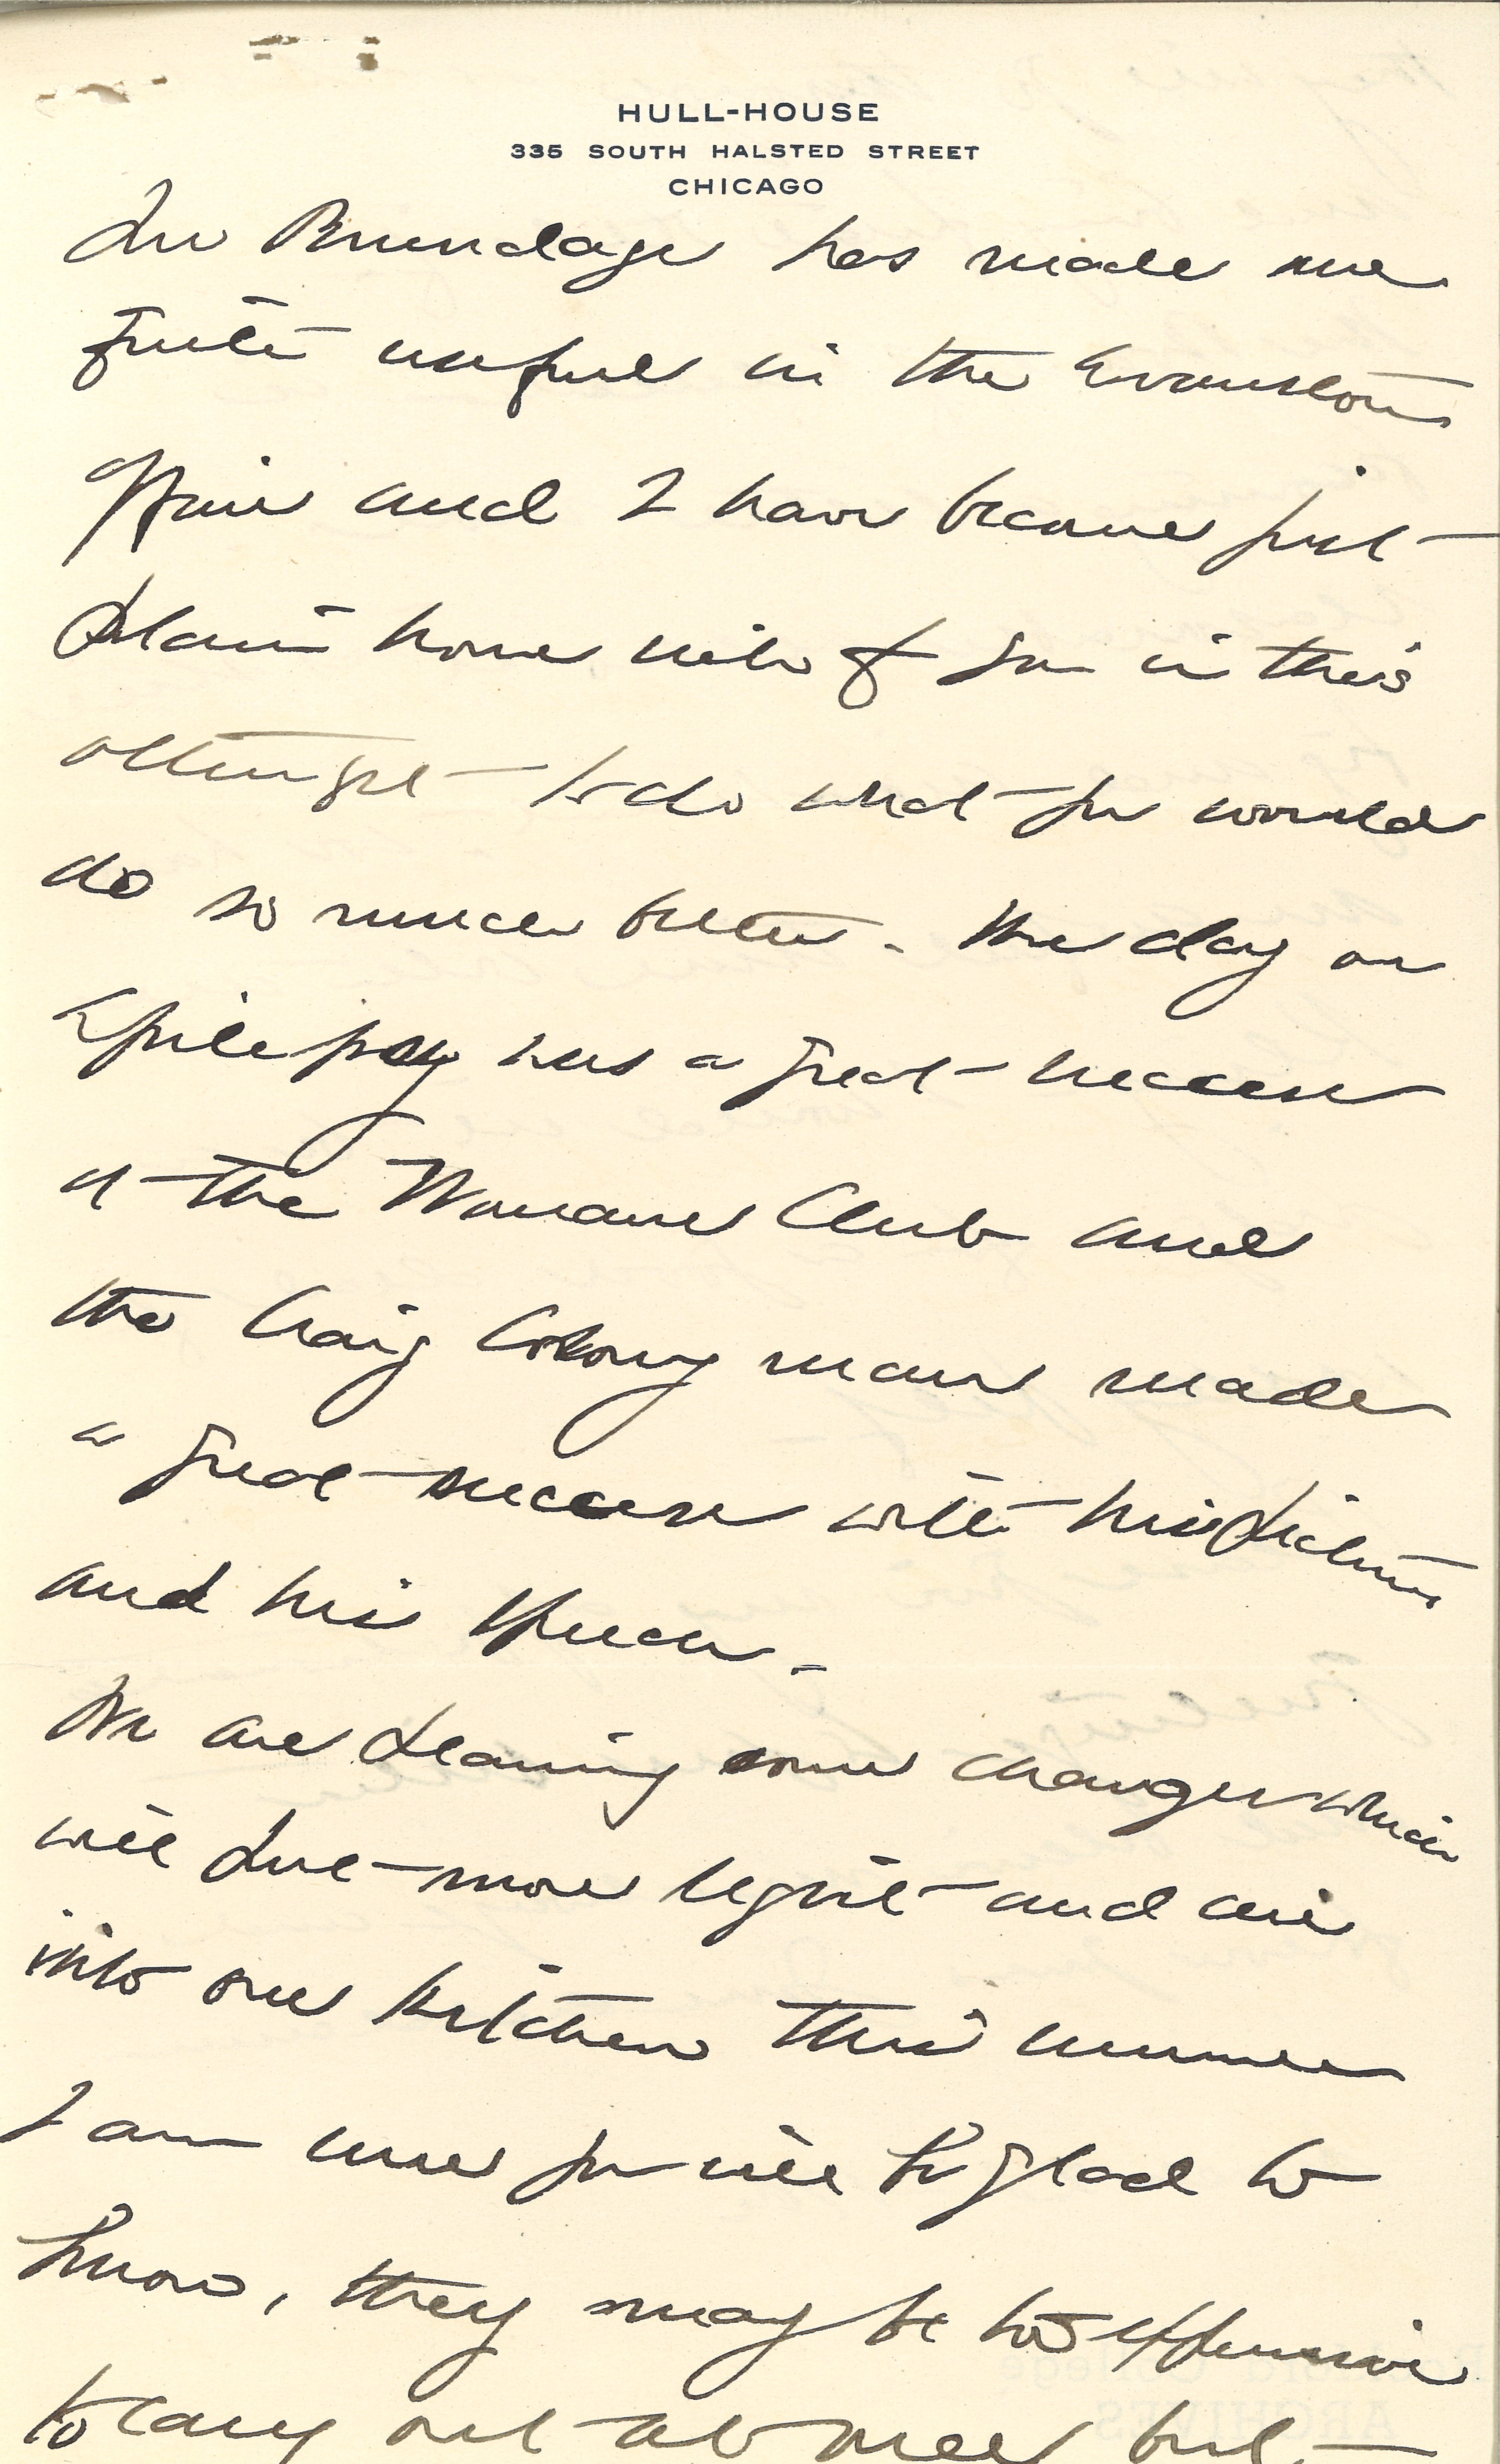 HULL-HOUSE
335 SOUTH HALSTED STREET
CHICAGO
Dr Brundage has made me
quite useful in the Evanston
affair and I have become just
plain home sick for you in this
attempt to do what you would
do so much better. The day on
Epilepsy was a great success
at the Womans Club and
the Craig Colony man made
a great success with his pictures
and his speech.
We are planning some changes which
will put more light and air
into our kitchen this summer
I am sure you will be glad to
know, they may be too expensive
to carry out at once but